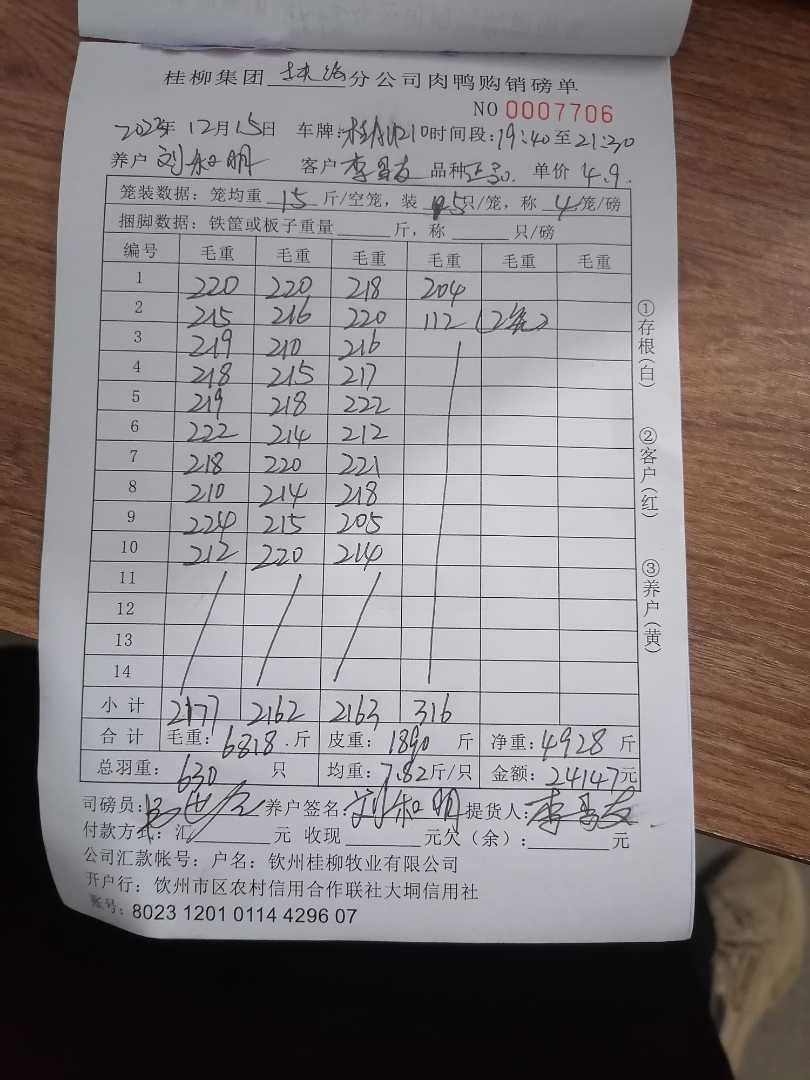 桂柳集团 分公司肉鸭购销磅单
NO 0007706
2023年 12月15日 车牌: 时间段:19:40至21:30
养户 刘和明 客户 李昌友 品种 单价 4.9.
笼装数据：笼均重 15 斤/空笼，装 5只/笼，称 4笼/磅
捆脚数据：铁筐或板子重量 斤，称 只/磅
编号 毛重 毛重 毛重 毛重 毛重 毛重
1 220 220 218 204
2 215 216 220 112 (2笼)
3 219 210 216
4 218 215 217
5 219 218 222
6 222 214 212
7 218 220 221
8 210 214 218
9 224 215 205
10 212 220 214
11
12
13
14
小计 2177 2162 2163 316
合计 毛重: 6818.斤 皮重: 1890 斤 净重: 4928 斤
总羽重: 630 只 均重: 7.82斤/只 金额: 24147元
司磅员: 养户签名: 刘和明 提货人: 李昌友
付款方式: 汇 元 收现 元欠（余）: 元
公司汇款帐号：户名：钦州桂柳牧业有限公司
开户行：钦州市区农村信用合作联社大垌信用社
账号: 8023 1201 0114 4296 07
①存根(白)
②客户(红)
③养户(黄)